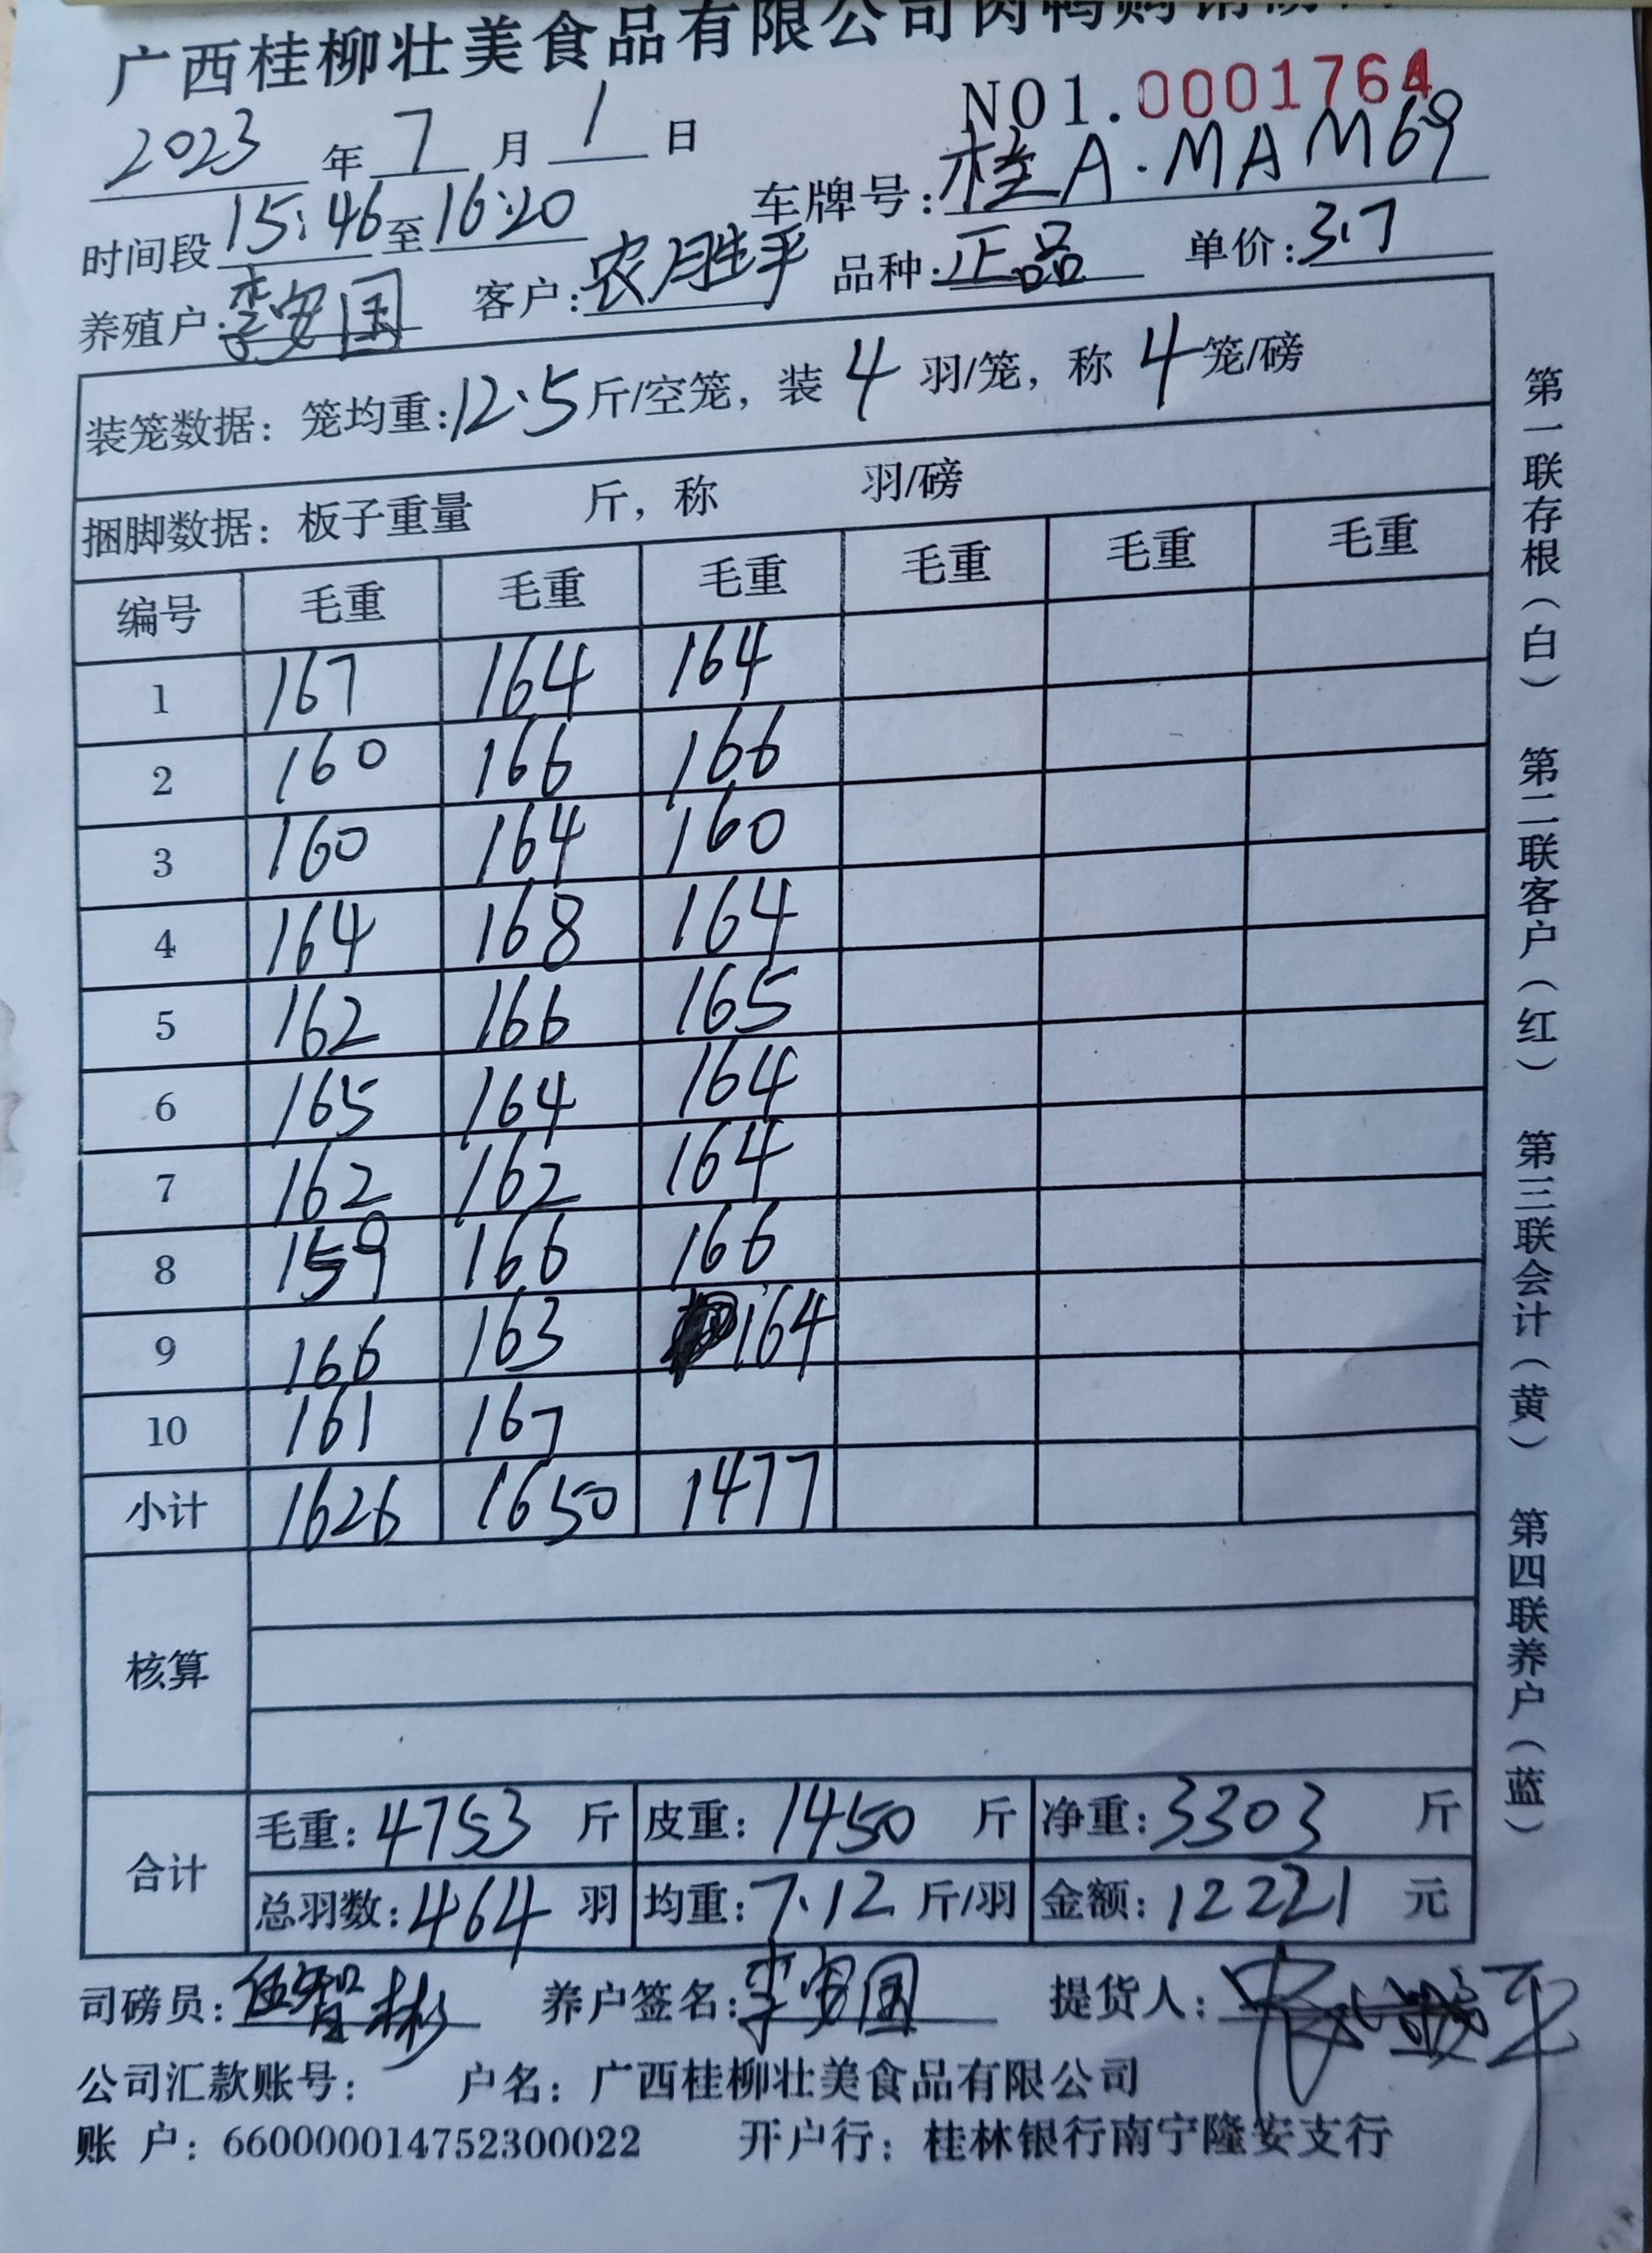 广西桂柳壮美食品有限公司肉鸭购销
NO1.0001764
2023年7月1日
车牌号:桂A·MAM69
时间段15:46至16:20
养殖户:李安国 客户:农胜平 品种:正品 单价:3.7
装笼数据：笼均重:12.5斤/空笼，装4羽/笼，称4笼/磅
捆脚数据：板子重量 斤，称 羽/磅
编号 毛重 毛重 毛重 毛重 毛重 毛重
1 167 164 164
2 160 166 166
3 160 164 160
4 164 168 164
5 162 166 165
6 165 164 164
7 162 162 164
8 159 166 166
9 166 163 164
10 161 167
小计 1626 1650 1477
核算
合计
毛重:4753斤 皮重:1450斤 净重:3303斤
总羽数:464羽 均重:7.12斤/羽 金额:12221元
司磅员:伍智彬 养户签名:李安国 提货人:农胜平
公司汇款账号： 户名：广西桂柳壮美食品有限公司
账 户：660000014752300022 开户行：桂林银行南宁隆安支行
第一联存根（白） 第二联客户（红） 第三联会计（黄） 第四联养户（蓝）